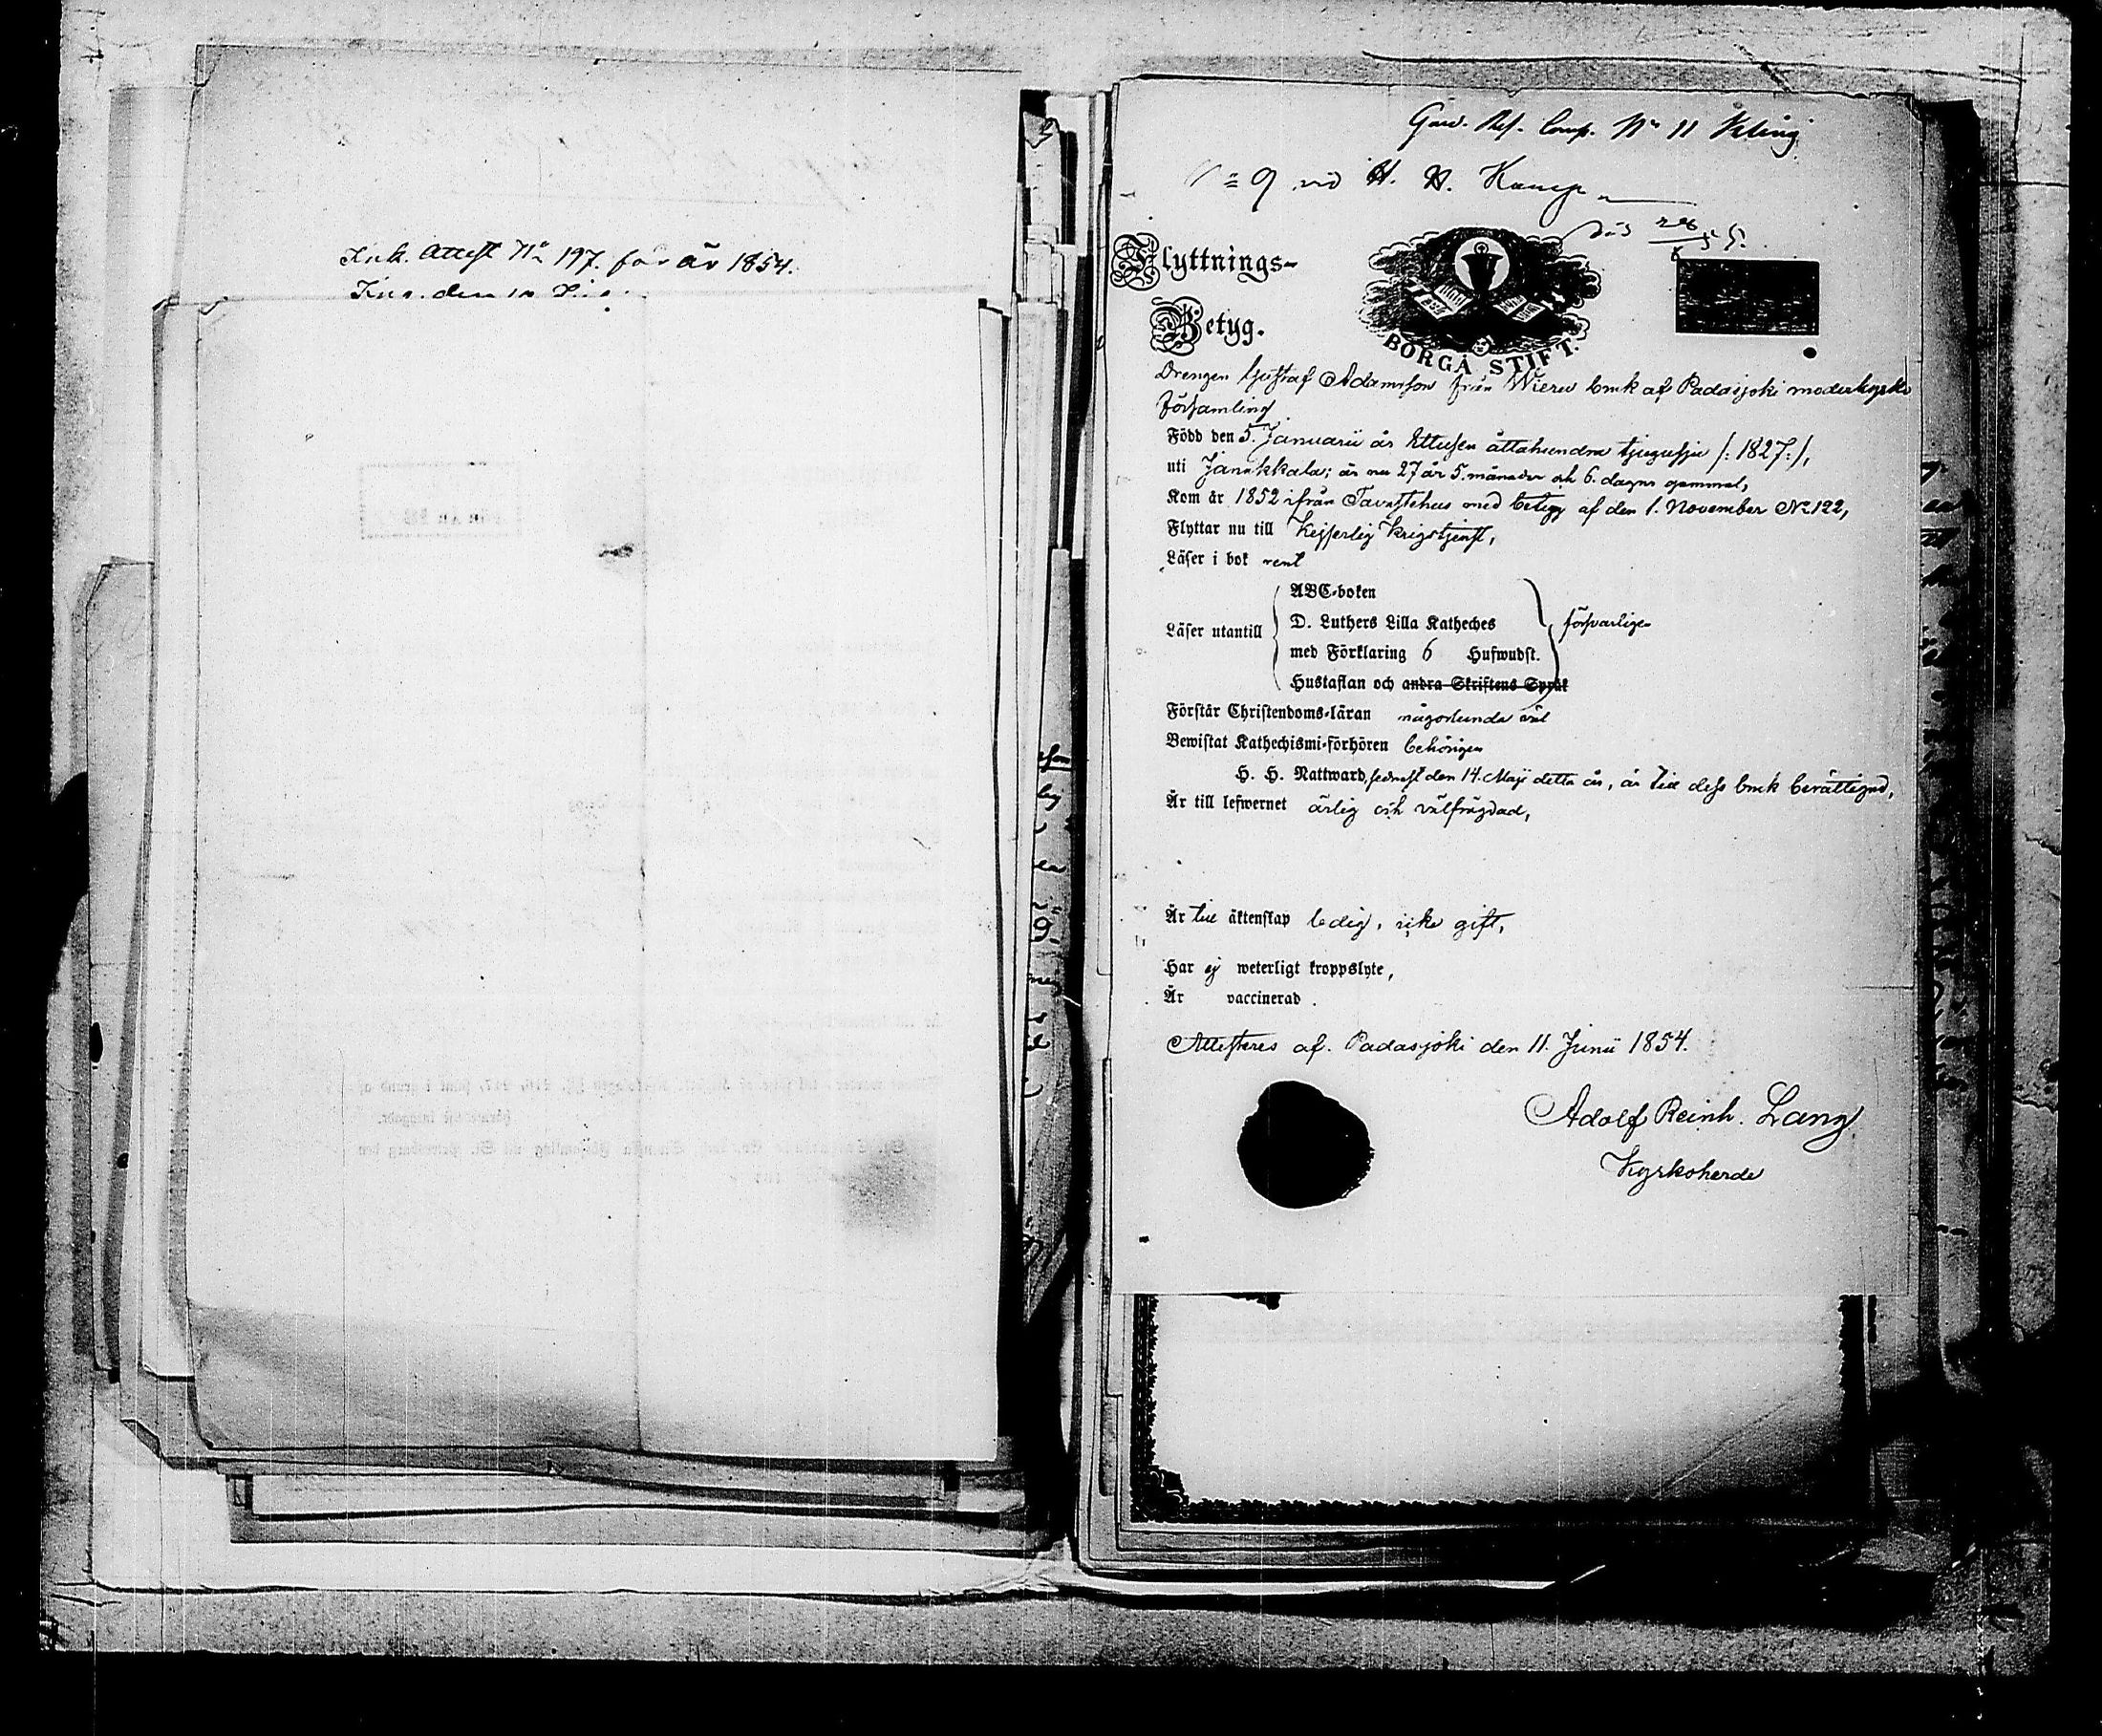 Ink. Attest No 197. för år 1854.
Gard. Res. Comp. No 11 Kling
No 9 vid H. H. Kamp
död 28/6 55.
Flyttnings-
Betyg.
BORGÅ STIFT.
Drengen Gustaf Adamsson från Wieru bruk af Padasjoki moderkyrko
församling
Född den 5. Januarii år Ettusen åttahundra tjugusju /: 1827:/,
uti Janakkala; är nu 27 år 5. månader och 6. dagar gammal,
Kom år 1852 ifrån Tavastehus med betyg af den 1. November No 122,
Flyttar nu till Kejserlig Krigstjenst,
Läser i bok rent
ABC-boken
D. Luthers Lilla Katheches
Läser utantill
försvarligen
med Förklaring 6 Hufwudst.
Hustaflan och andra Skriftens Språk
Förstår Christendoms-läran någorlunda väl
Bewistat Kathechismi-förhören behörigen
H. H. Nattward, sednast den 14. Maji detta år, är till dess bruk berättigad,
Är till lefwernet ärlig och välfrägdad,
Är till äktenskap ledig, icke gift,
Har ej weterligt kroppslyte,
Är vaccinerad.
Attesteras af. Padasjoki den 11. Junii 1854.
Adolf Reinh. Lang
Kyrkoherde